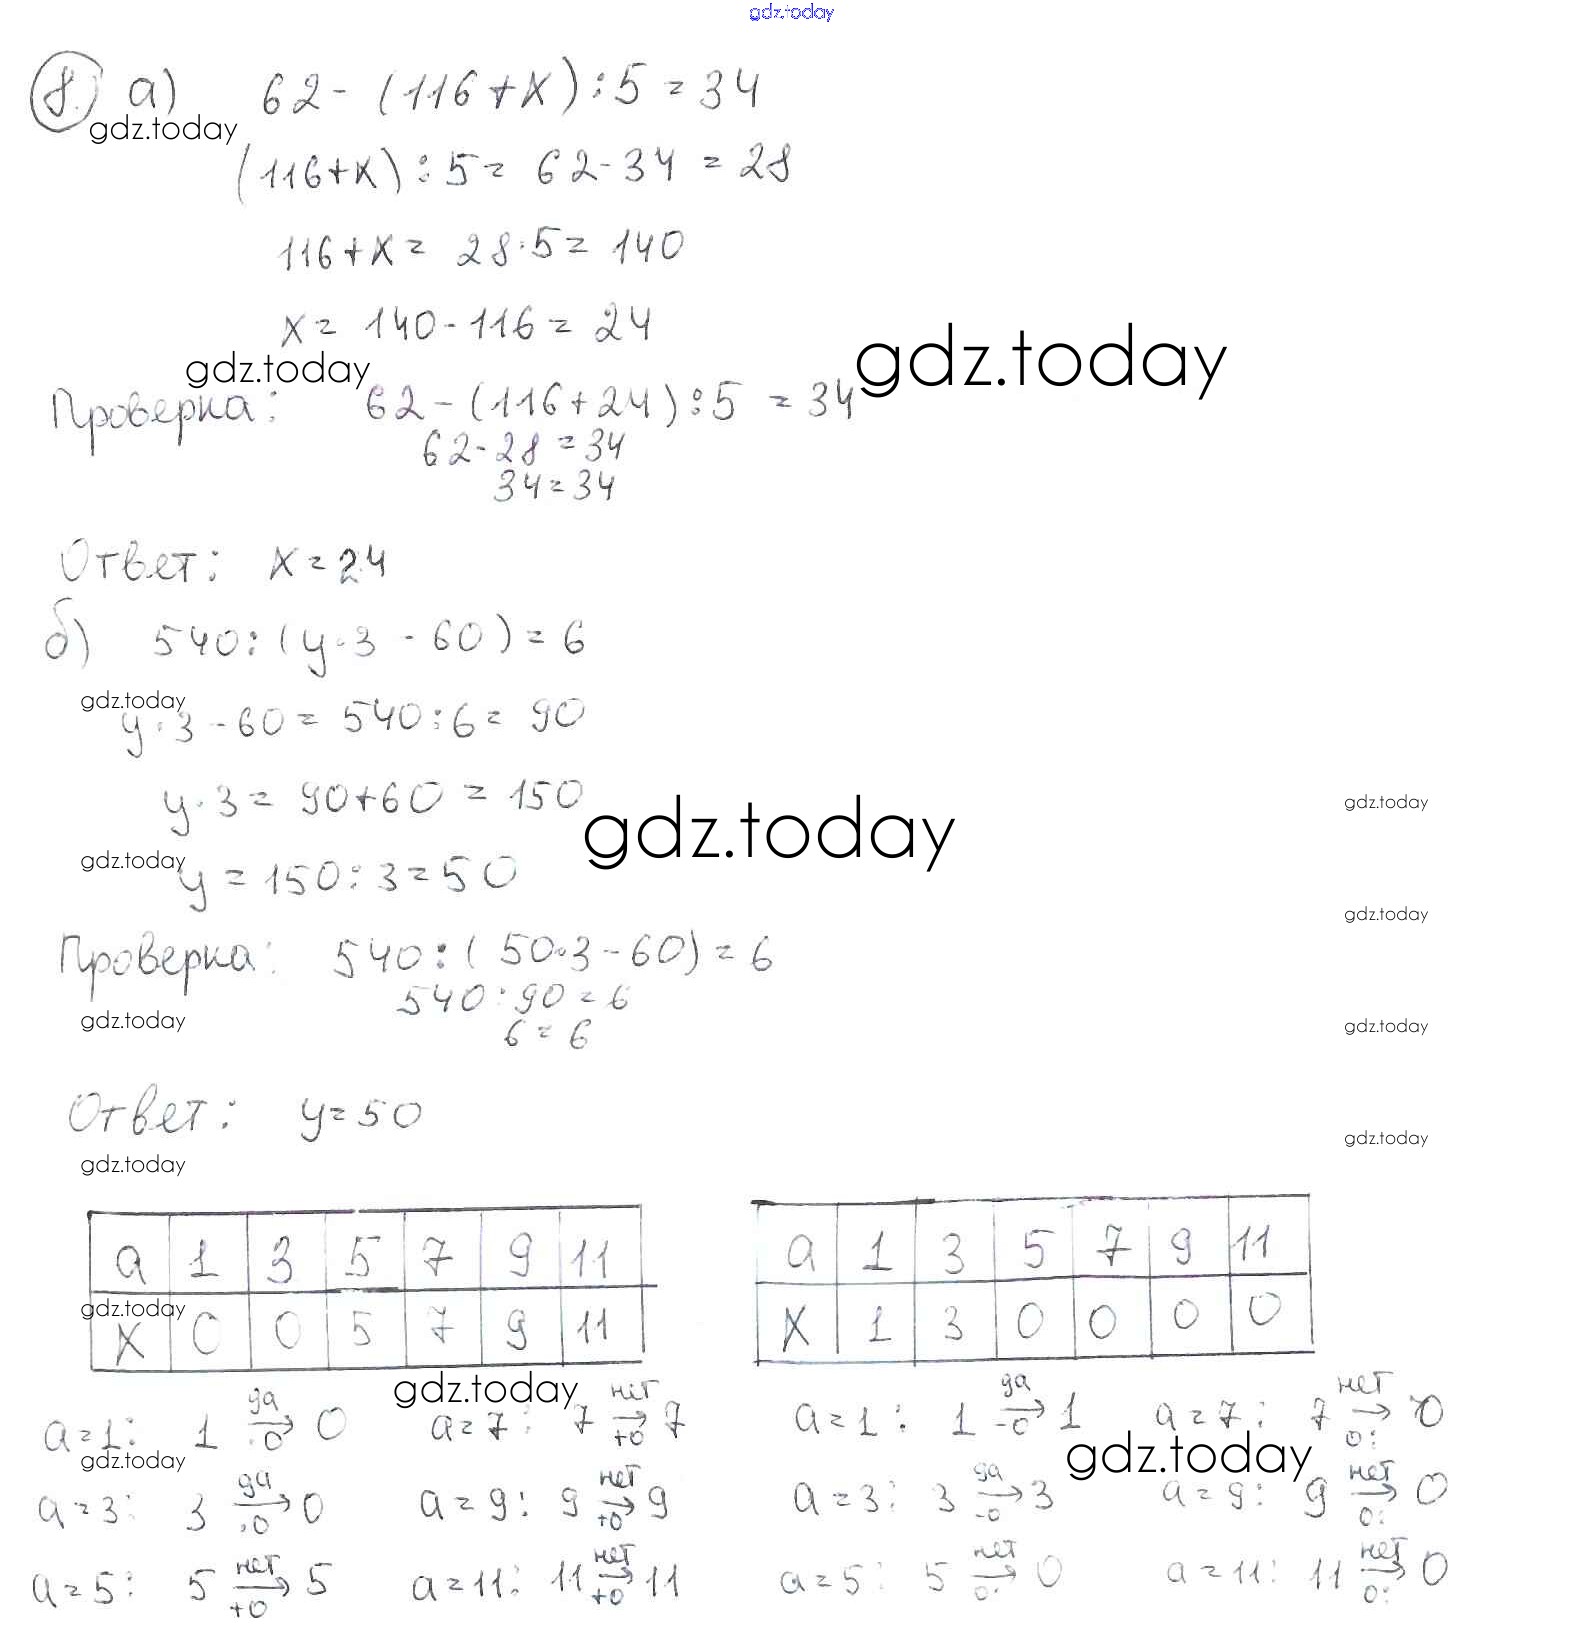 gdz.today
8. а) 62 - (116 + x) : 5 = 34
gdz.today
(116 + x) : 5 = 62 - 34 = 28
116 + x = 28 · 5 = 140
x = 140 - 116 = 24
gdz.today gdz.today
Проверка: 62 - (116 + 24) : 5 = 34
62 - 28 = 34
34 = 34
Ответ: x = 24
б) 540 : (y · 3 - 60) = 6
gdz.today
y · 3 - 60 = 540 : 6 = 90
y · 3 = 90 + 60 = 150
gdz.today gdz.today
gdz.today
y = 150 : 3 = 50
gdz.today
Проверка: 540 : (50 · 3 - 60) = 6
540 : 90 = 6
gdz.today gdz.today
6 = 6
Ответ: y = 50
gdz.today
gdz.today
a 1 3 5 7 9 11 a 1 3 5 7 9 11
gdz.today
x 0 0 5 7 9 11 x 1 3 0 0 0 0
gdz.today
да нет да нет
a = 1: 1 → 0 a = 7: 7 → 7 a = 1: 1 → 1 a = 7: 7 → 0
·0 +0 -0 0:
gdz.today gdz.today
да нет да нет
a = 3: 3 → 0 a = 9: 9 → 9 a = 3: 3 → 3 a = 9: 9 → 0
·0 +0 -0 0:
нет нет нет нет
a = 5: 5 → 5 a = 11: 11 → 11 a = 5: 5 → 0 a = 11: 11 → 0
+0 +0 0: 0: